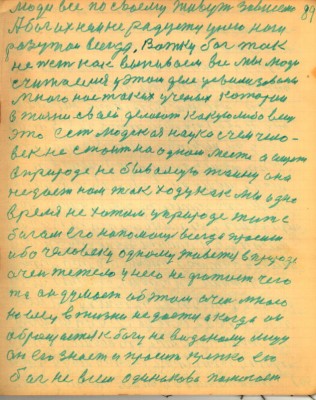 Люди все по своему живут зависемо 89
А бог их нине радует у него ноги
разутои всегда. Вотжи бог так
не жет как выпиваем все мы люди
считаемся у этом деле цевилизованы
много нас таких ученых которои
в жизни своей делают какуюлибо вещ
это Сет людская наука счем чело-
век не стоит на одном месте а ищет
в природе не бывалую таину она
недает нам так ходу как мы одно
время не хотим у природе жить с
богам его на помощ всегда просим
ибо человеку одному живется в природе
очен тежело у него не достает чего
то он думает об этом очен много
но ему в жизни не дается а когда он
обращается к богу не виданому лицу
он его знает и просит крепко его
бог не всем одинаково помогает